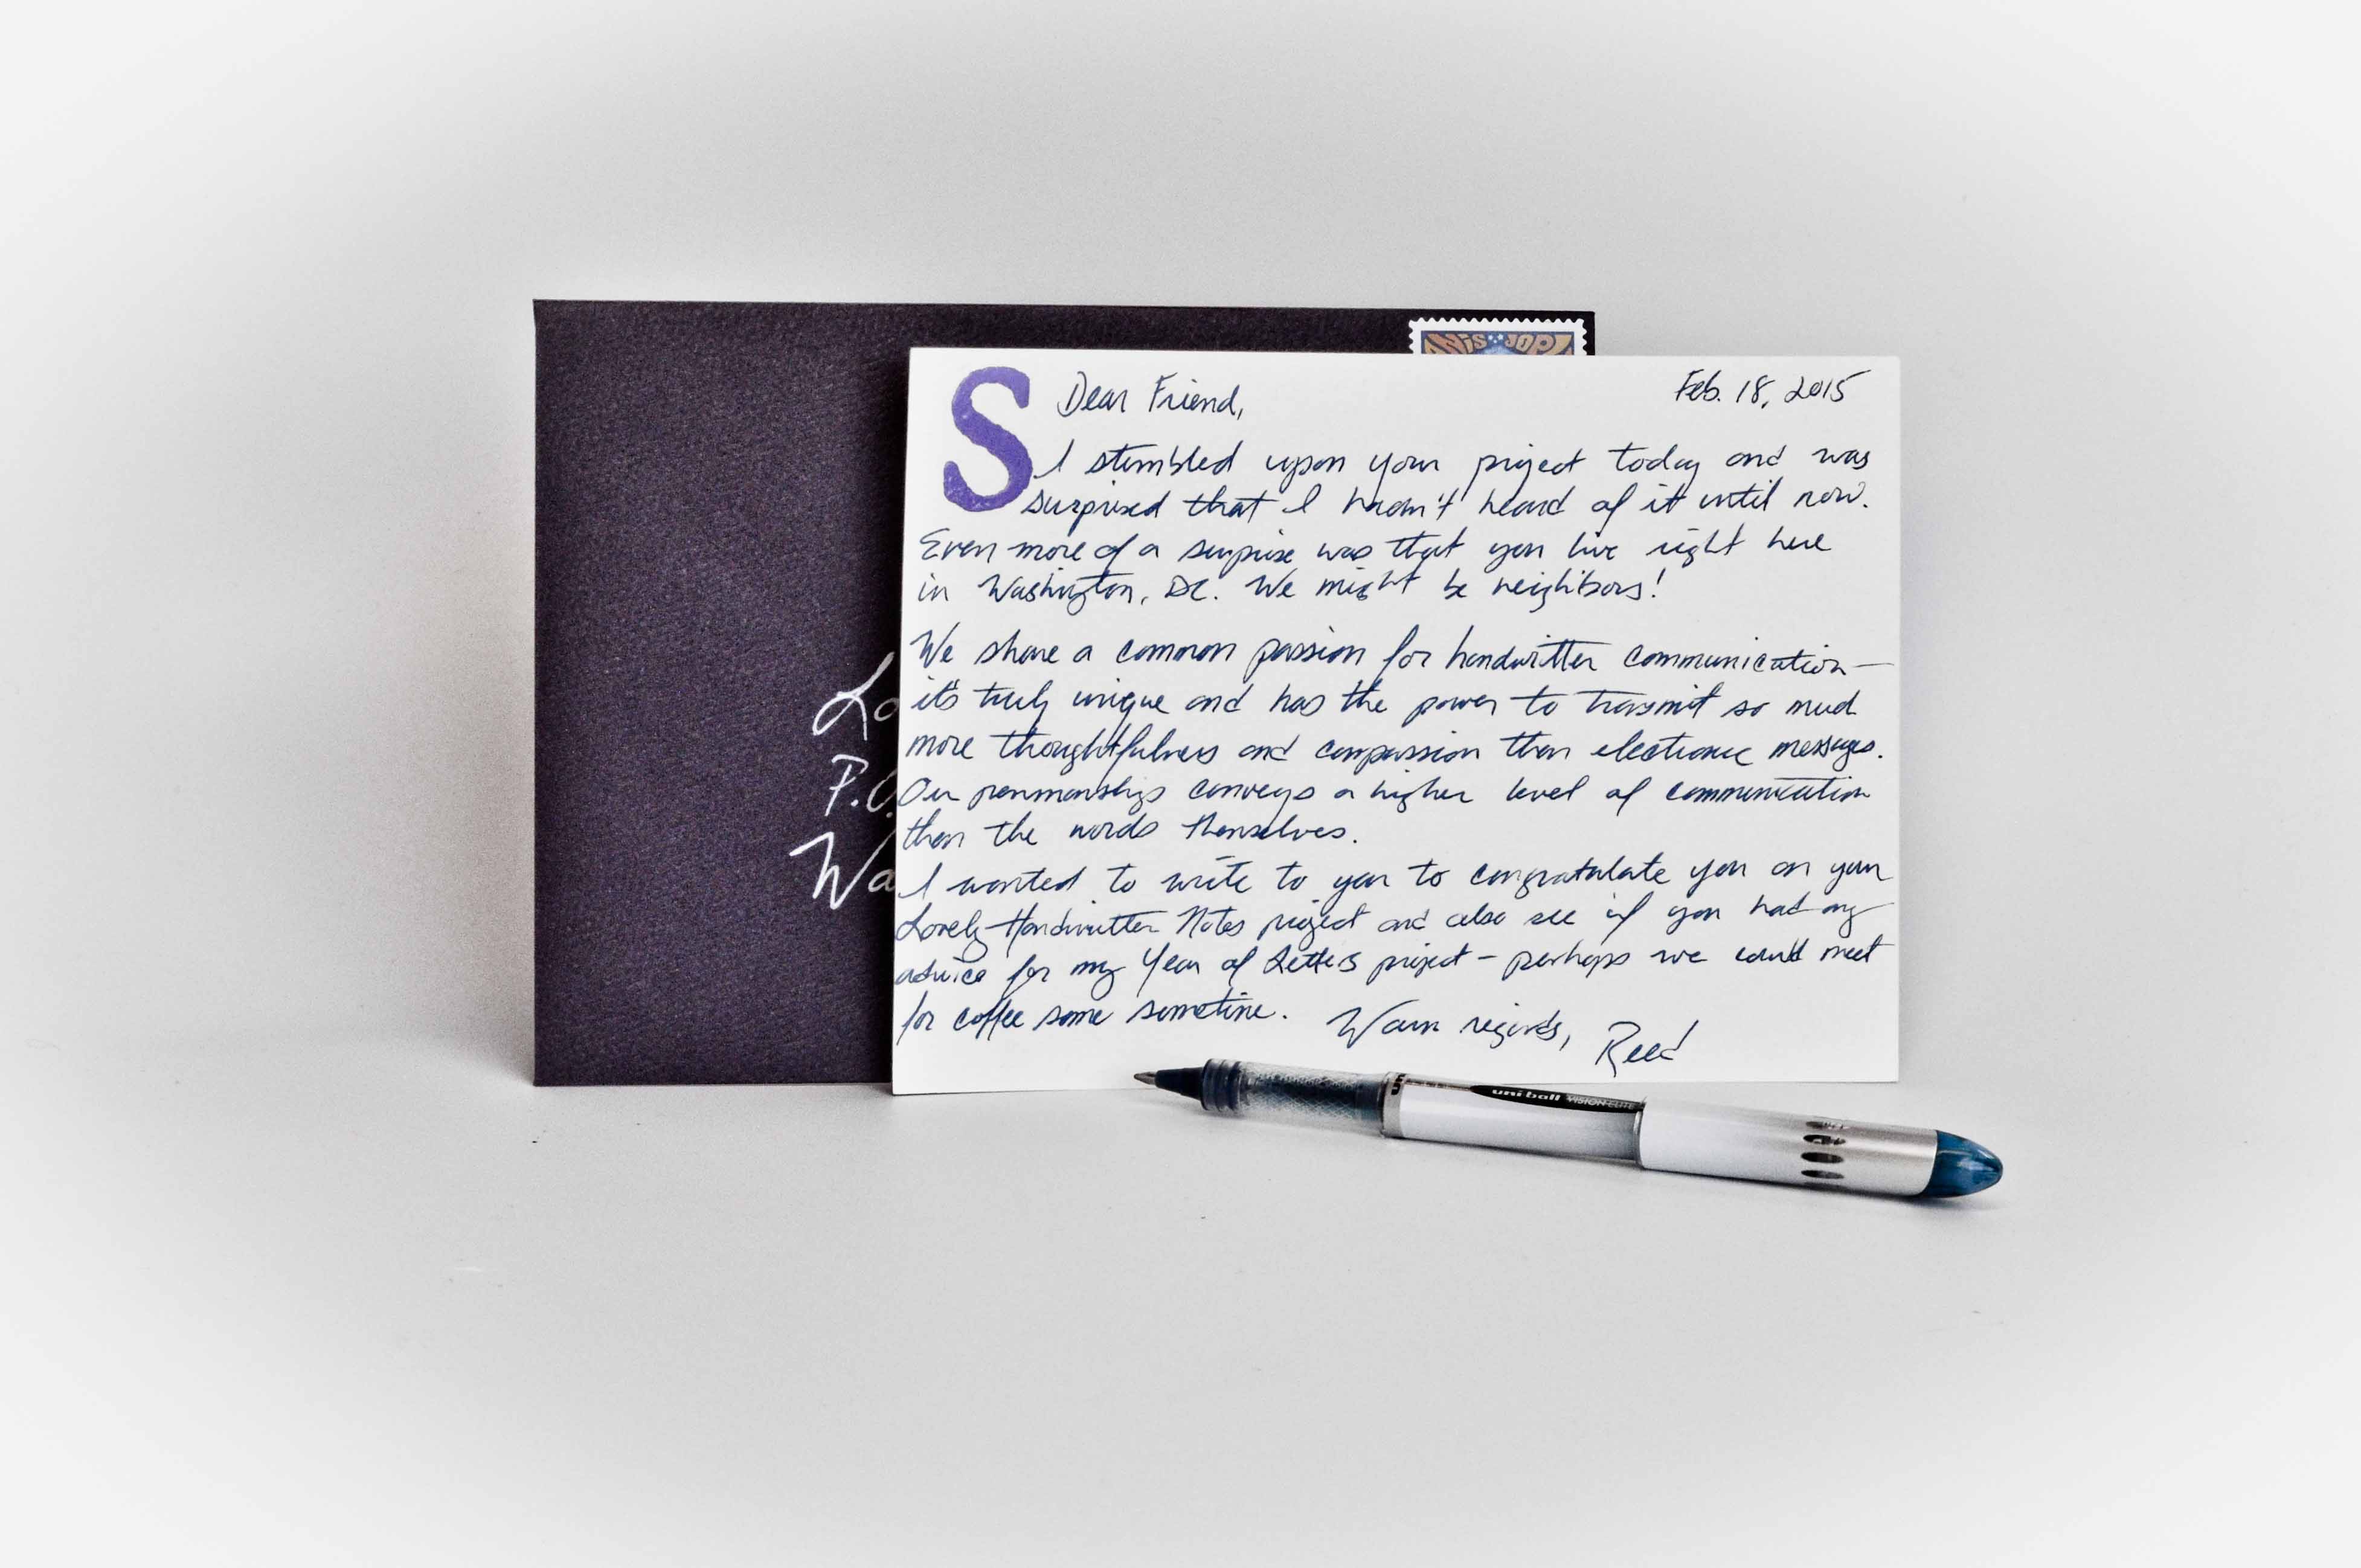 JANIS JOPL
S
Dear Friend,
Feb. 18, 2015
I stumbled upon your project today and was
surprised that I hadn't heard of it until now.
Even more of a surprise was that you live right here
in Washington, DC. We might be neighbors!
We share a common passion for handwritten communication—
it's truly unique and has the power to transmit so much
more thoughtfulness and compassion than electronic messages.
Our penmanship conveys a higher level of communication
than the words themselves.
I wanted to write to you to congratulate you on your
Lovely Handwritten Notes project and also see if you had any
advice for my Year of Letters project - perhaps we could meet
for coffee some sometime.
Warm regards,
Reed
Lo
P.O
Wa
uni-ball VISION ELITE